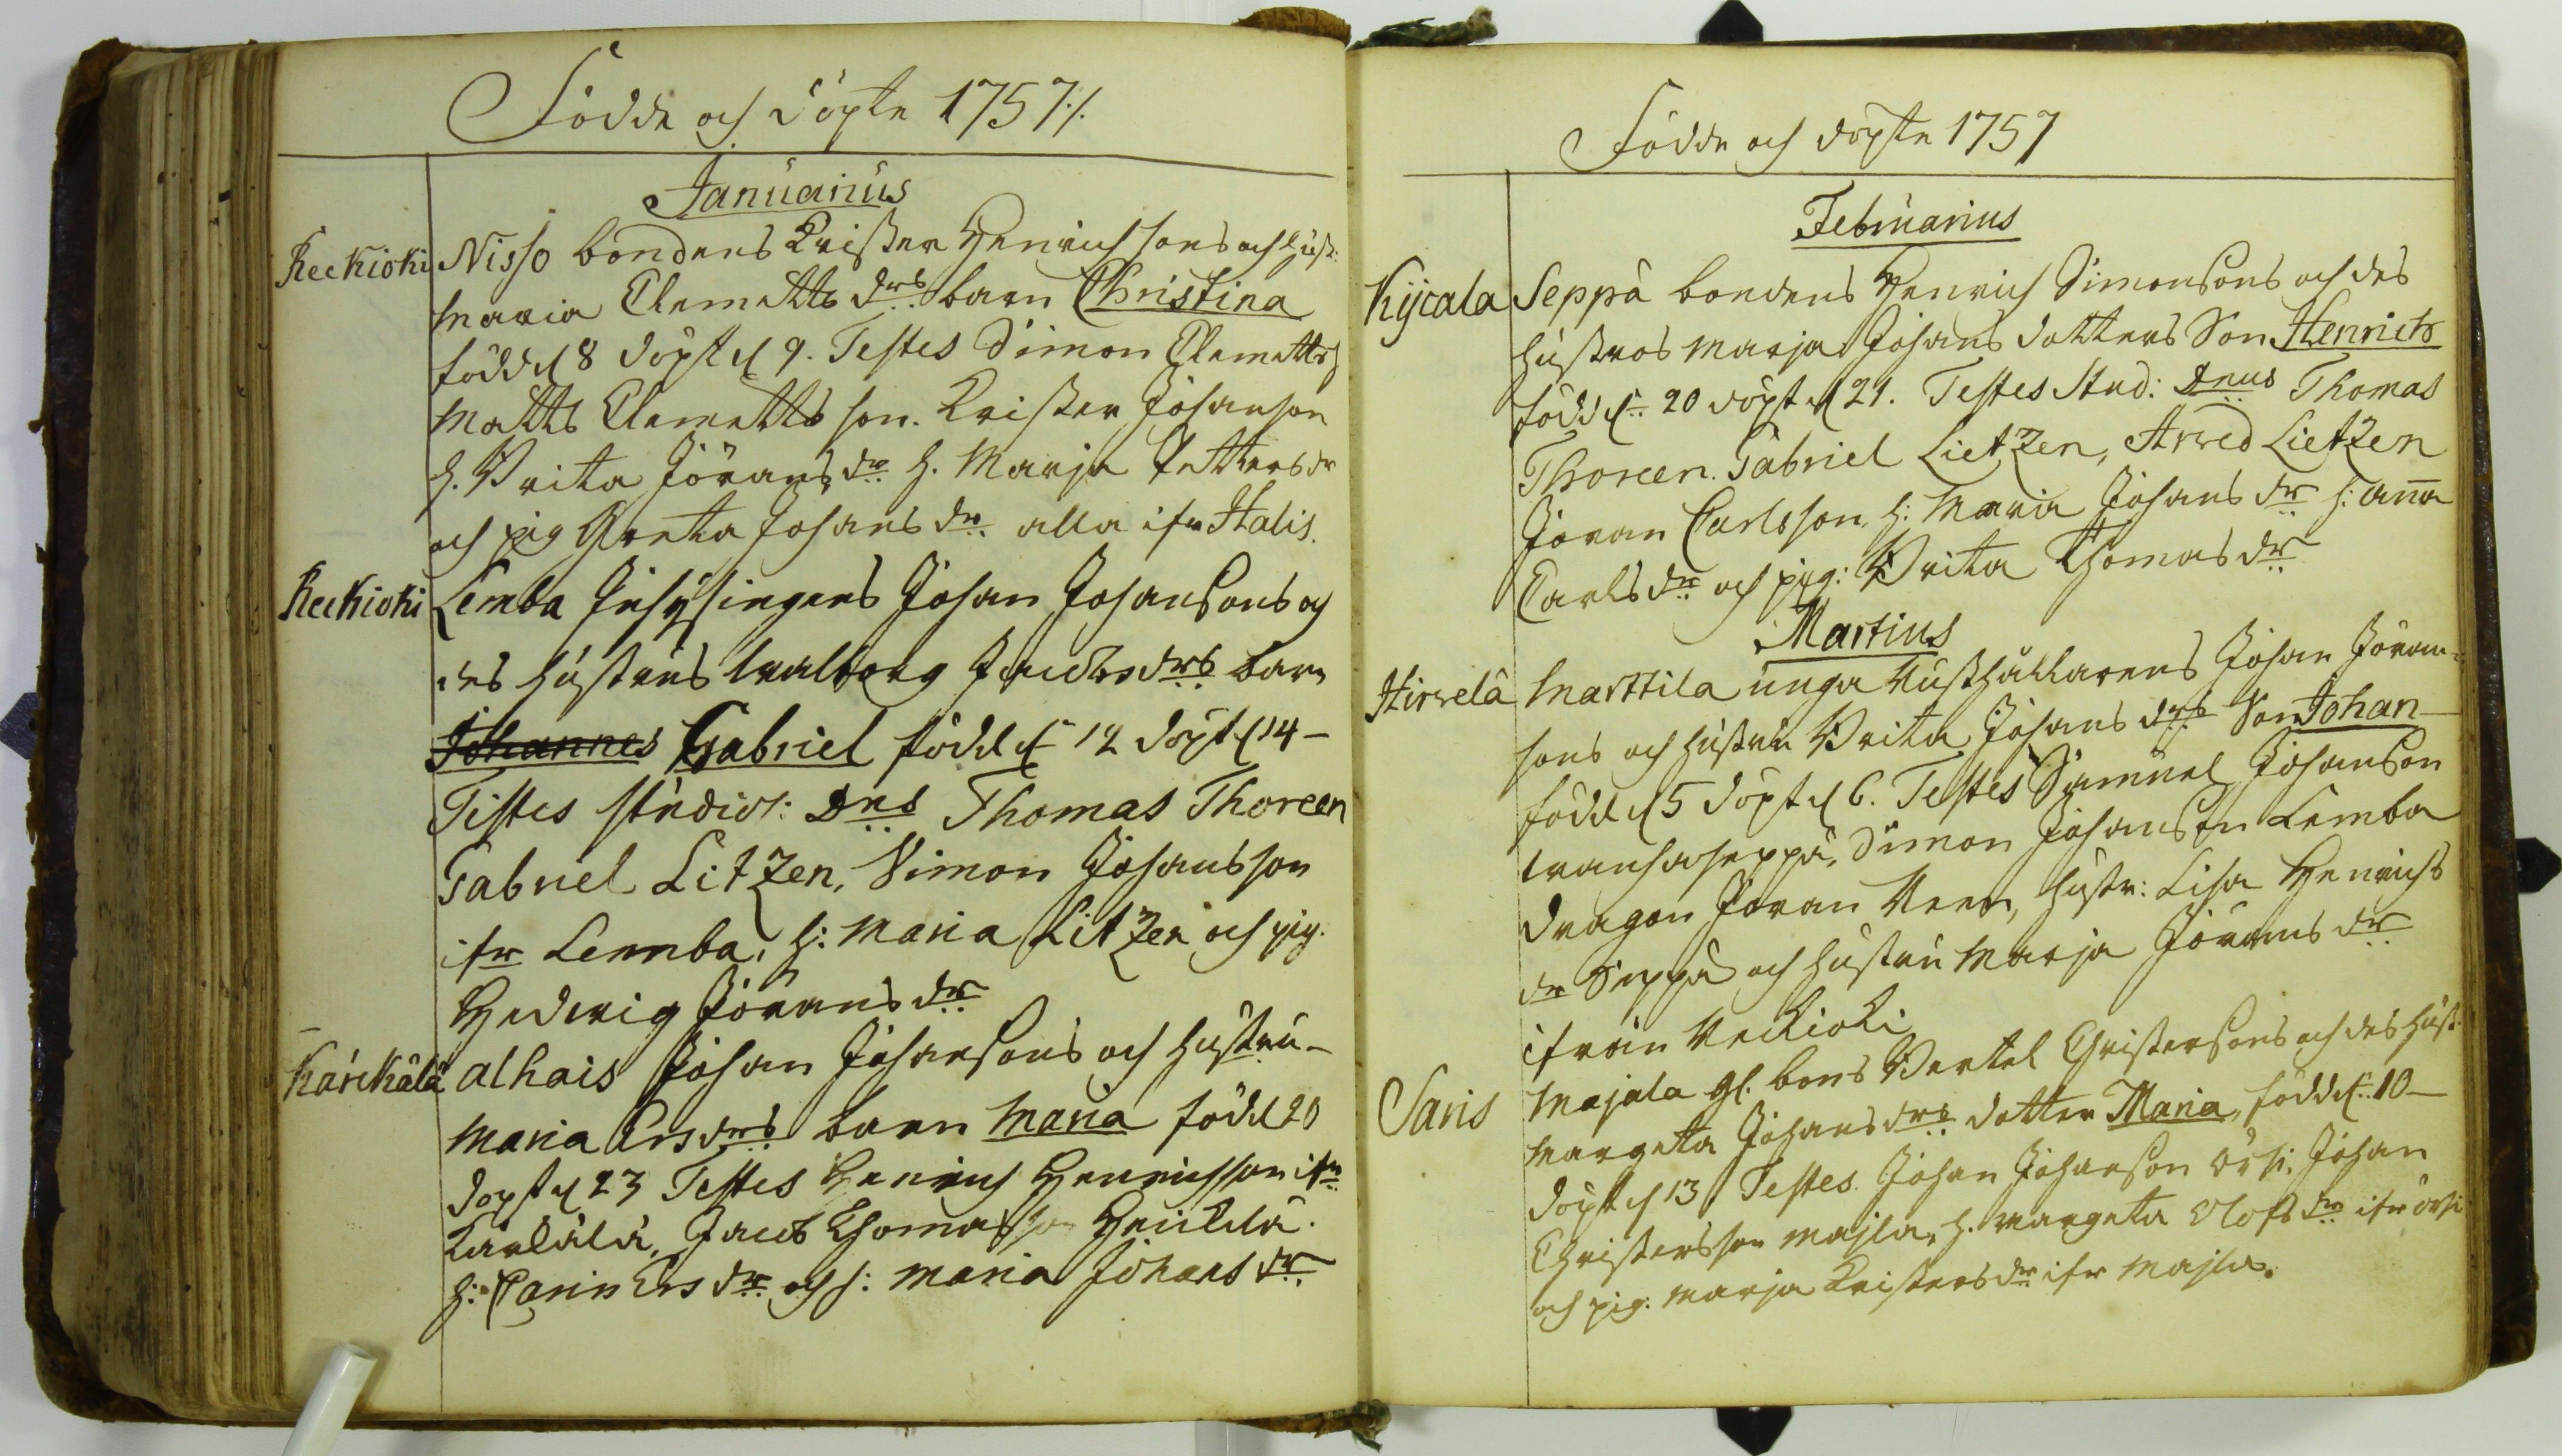 Födde och döpte 1757./.
Januarius
Reckioki Nisso bondens Krister Henrich sons och hust:
Maria Clemetts drs barn Christina
född d 8 döpt d 9. Testes Simon Clemetts
Matts Clemetts son. Krister Johanson
h. Brita Jörans dr h. Marja Petters dr
och pig Greta Johans dr. alla ifr Halis.
Reckioki Lemba Inhysingens Johan Johansons och
des hustrus Walborg Jacobs drs barn
Johannes Gabriel född d 12 döpt d 14 –
Testes studios: Dns Thomas Thoreen
Gabriel LitZen, Simon Johansson
ifr Lemba, h: Maria LitZen och pig.
Hedwig Jörans dr
Kärckälä Alhais Johan Johansons och hustru –
Maria Ers drs barn Maria född 20
döpt d 23 Testes Henrich Henrichsson ifr
Kärkälä, Jacob Thomasson Heickilä.
h: Carin Ers dr och h: Maria Johans dr
Födde och döpte 1757
Februarius
Kijcala Seppä bondens Henrich Simonsons och des
hustros Marja Johans dotters Son Henrich
född d. 20 döpt d 21. Testes Stud: Dnus Thomas
Thoreen. Gabriel LietZen, Arved LietZen
Jöran Carlsson, h: Maria Johans dr h: Anna
Carls dr och pig: Brita Thomas dr
Martius
Hirvelä Marttila unga Rusthållarens Johan Jöran-
sons och hustru Brita Johans drs Son Johan –
född d 5 döpt d 6. Testes Samuel Johanson
Wanhaseppä, Simon Johanson Lemba
Dragon Jöran Reen, hustr: Lisa Henrichs
dr Seppä och hustru Marja Jörans dr
ifrån Reckioki
Saris Majala gl. bons Bertel Christersons och des hust:
Margeta Johans drs dotter Maria, född d. 10 –
döpt d 13 Testes. Johan Johanson Orhi. Johan
Christersson Majla, h. Margeta Olofs dr ifr Orhi
och pig: Marja Kristers dr ifr Majla.